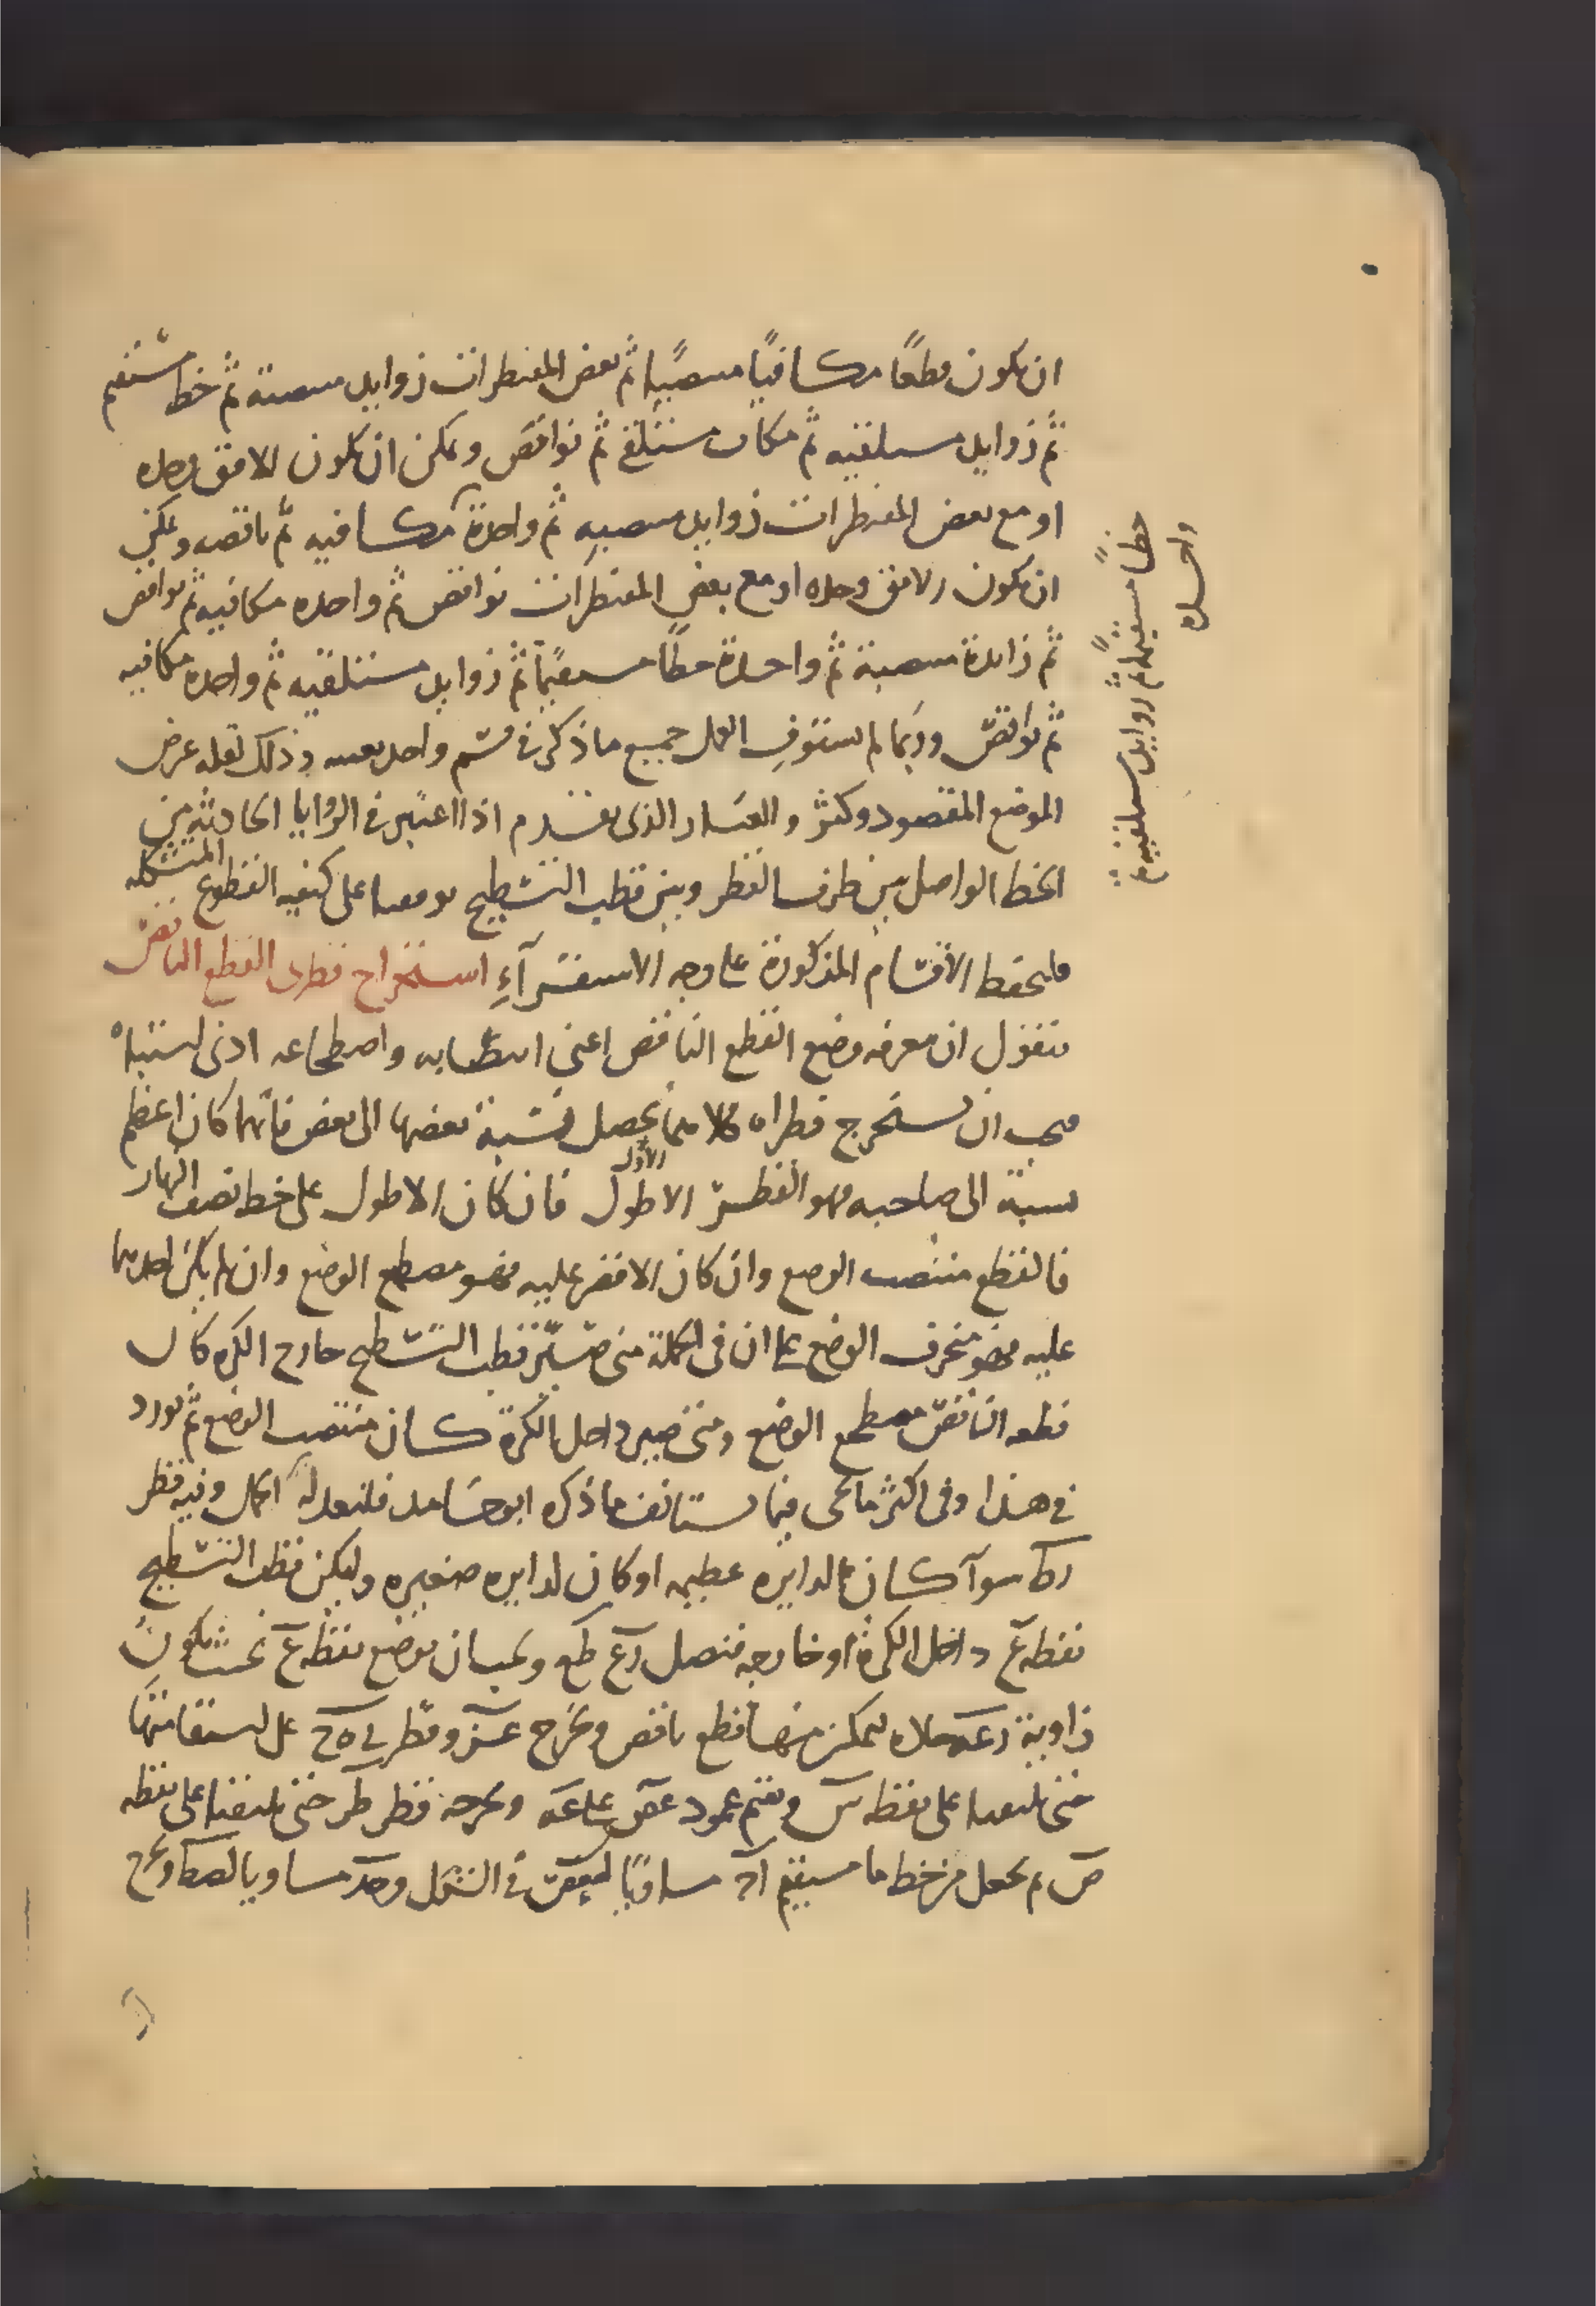 ان يكون قطعًا مكافيًا منتصبًا ثم بعض المقنطرات زوايد منتصبة ثم خط مستقيم
ثم زوايد مستلقيه ثم مكاف مستلقي ثم نواقص ويمكن ان يكون للافق وحده
او مع بعض المقنطرات زوايد منتصبه ثم واحدة مكافيه ثم ناقصه ويمكن
ان يكون الافق وحده او مع بعض المقنطرات نواقص ثم واحده مكافيه ثم نواقص
ثم زايدة منتصبة ثم واحدة خطًا مستقيمًا ثم زوايد مستلقيه ثم واحده مكافيه
ثم نواقص وربما لم يستوف العمل جميع ما ذكر في قسم واحد بعينه وذلك لقله عرض
الموضع المقصود وكثر والعيار الذى تقدم اذا اعتبر في الزوايا الحادثه من
الخط الواصل بين طرف القطر وبين قطب التسطيح يوقفنا على كيفيه القطوع المتشكله
فليحفظ الأقسام المذكورة على وجه الاستقرآء استخراج قطرى القطع الناقص
فنقول ان معرفه وضع القطع الناقص اعنى انتصابه واضطجاعه ادنى اشتباه
فيجب ان نستخرج قطراه كلاهما نحصل نسبة بعضها الى بعض فايهما كان اعظم
نسبة الى صاحبه فهو القطر الاول الاطول فان كان الاطول على خط نصف النهار
فالقطع منتصب الوضع وان كان الاقصر عليه فهو مضطجع الوضع وان لم يكن احدهما
عليه فهو منحرف الوضع على ان في الجملة متى صير قطب التسطيح خارج الكره كان
قطعه الناقص مضطجع الوضع ومتى صير داخل الكرة كان منتصب الوضع ثم نورد
في هذا وفى اكثر ما نحى فيما نستانف ما ذكره ابو حامد فلنعد له الحمل وفيه قطر
رط سوآ كان لدايره عظيمه او كان لدايره صغيره وليكن قطب التسطيح
نقطه ع داخل الكرة او خارجه فنصل رع طع ويجب ان نوضع نقطه ع بحيث يكون
على استقامتها
حتى يلتقيا على نقطه س ونقيم عمود عص على عه ونخرجه قطر طر حتى يلتقيا على نقطه
ص ثم نجعل من خط ما مستقيم في الشكل
خطًا مستقيمًا ثم زوايد مستلقيه ثم
واحده